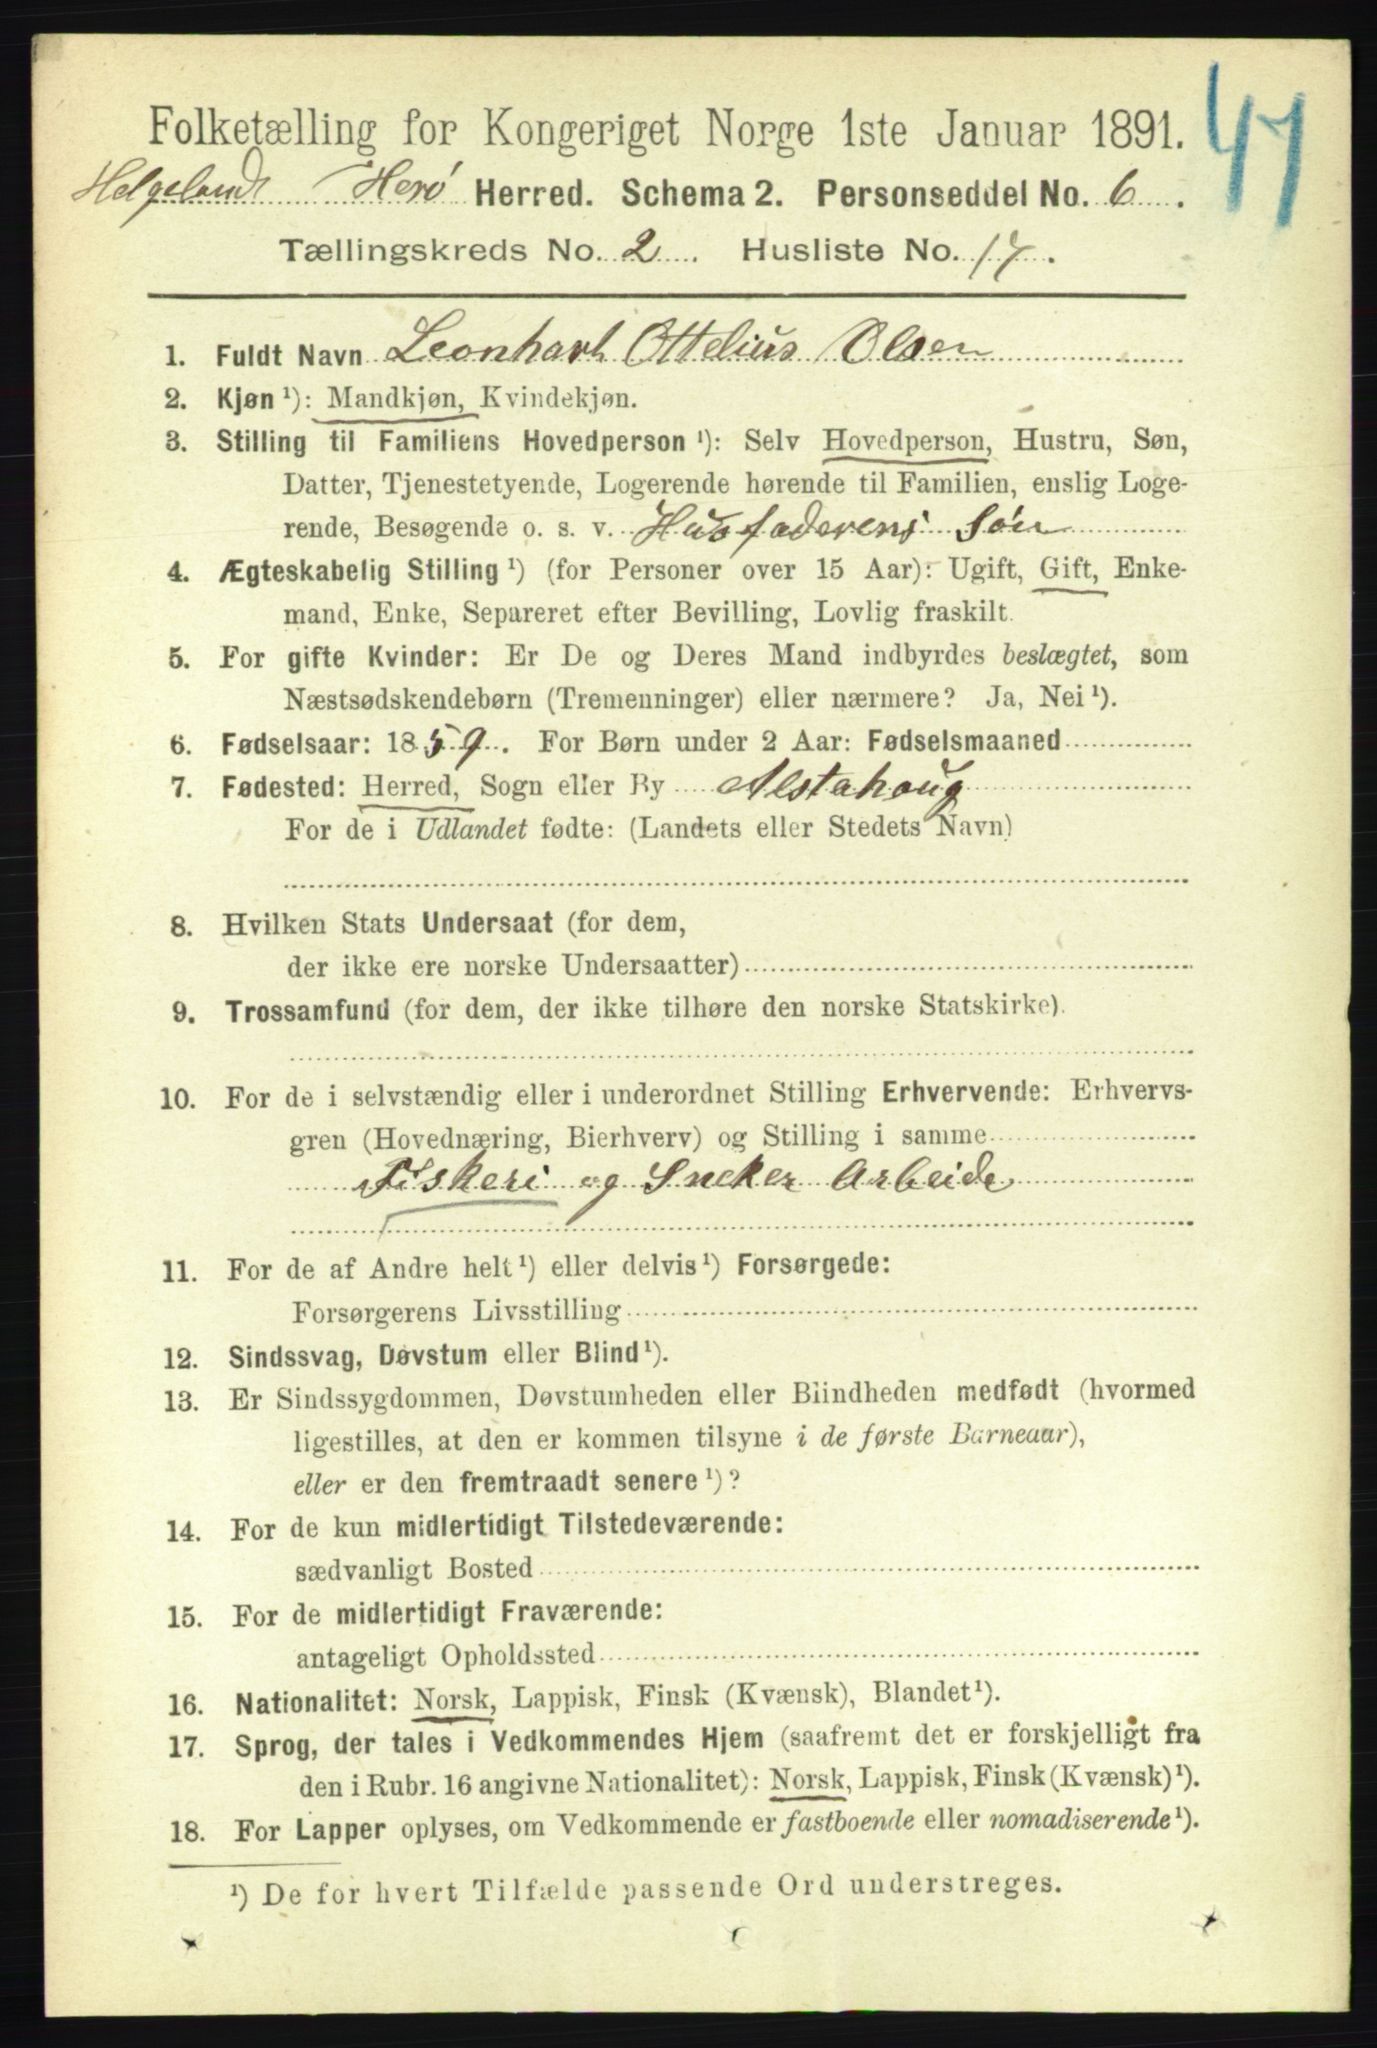 Folketælling for Kongeriget Norge 1ste Januar 1891.
47
Helgeland Herø Herred. Schema 2. Personseddel No. 6.
Tællingskreds No. 2. Husliste No. 17.
1. Fuldt Navn Leonhart Ottelius Olsen
2. Kjøn ¹): Mandkjøn, Kvindekjøn.
3. Stilling til Familiens Hovedperson ¹): Selv Hovedperson, Hustru, Søn,
Datter, Tjenestetyende, Logerende hørende til Familien, enslig Loge-
rende, Besøgende o. s. v. Husfaderens Søn
4. Ægteskabelig Stilling ¹) (for Personer over 15 Aar): Ugift, Gift, Enke-
mand, Enke, Separeret efter Bevilling, Lovlig fraskilt.
5. For gifte Kvinder: Er De og Deres Mand indbyrdes beslægtet, som
Næstsødskendebørn (Tremenninger) eller nærmere? Ja, Nei ¹).
6. Fødselsaar: 1859. For Børn under 2 Aar: Fødselsmaaned
7. Fødested: Herred, Sogn eller By Alstahoug
For de i Udlandet fødte: (Landets eller Stedets Navn)
8. Hvilken Stats Undersaat (for dem,
der ikke ere norske Undersaatter)
9. Trossamfund (for dem, der ikke tilhøre den norske Statskirke).
10. For de i selvstændig eller i underordnet Stilling Erhvervende: Erhvervs-
gren (Hovednæring, Bierhverv) og Stilling i samme
Fiskeri og Sneker Arbeide
11. For de af Andre helt ¹) eller delvis ¹) Forsørgede:
Forsørgerens Livsstilling
12. Sindssvag, Døvstum eller Blind ¹).
13. Er Sindssygdommen, Døvstumheden eller Blindheden medfødt (hvormed
ligestilles, at den er kommen tilsyne i de første Barneaar),
eller er den fremtraadt senere ¹)?
14. For de kun midlertidigt Tilstedeværende:
sædvanligt Bosted
15. For de midlertidigt Fraværende:
antageligt Opholdssted
16. Nationalitet: Norsk, Lappisk, Finsk (Kvænsk), Blandet ¹).
17. Sprog, der tales i Vedkommendes Hjem (saafremt det er forskjelligt fra
den i Rubr. 16 angivne Nationalitet): Norsk, Lappisk, Finsk (Kvænsk) ¹).
18. For Lapper oplyses, om Vedkommende er fastboende eller nomadiserende ¹).
¹) De for hvert Tilfælde passende Ord understreges.